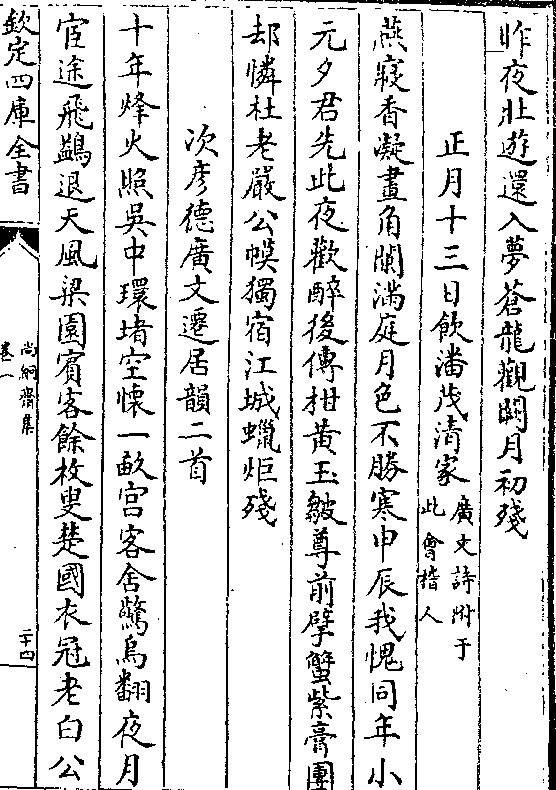 昨夜壯遊還入夢蒼龍觀闕月初殘
正月十三日飲潘茂清家廣文詩附于此會楷人
燕寢香凝畫角闌滿庭月色不勝寒申辰我愧同年小
元夕君先此夜歡醉後傳柑黄玉皺尊前擘蟹紫膏團
却憐杜老嚴公幙獨宿江城蠟炬殘
次彦德廣文遷居韻二首
十年烽火照吳中環堵空懷一畝宫客舍驚烏翻夜月
宦途飛鷁退天風梁園賓客餘枚叟楚國衣冠老白公
欽定四庫全書
尚絅齋集
卷一
二十四